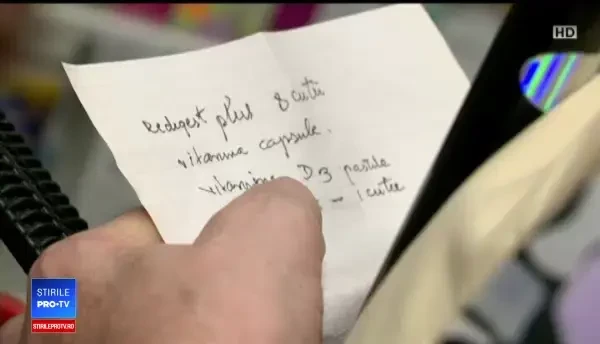 HD
plus 8 cutii
vitamina capsule.
vitamina D3 pastile
- 1 cutie
STIRILE
PRO•TV
STIRILEPROTV.RO